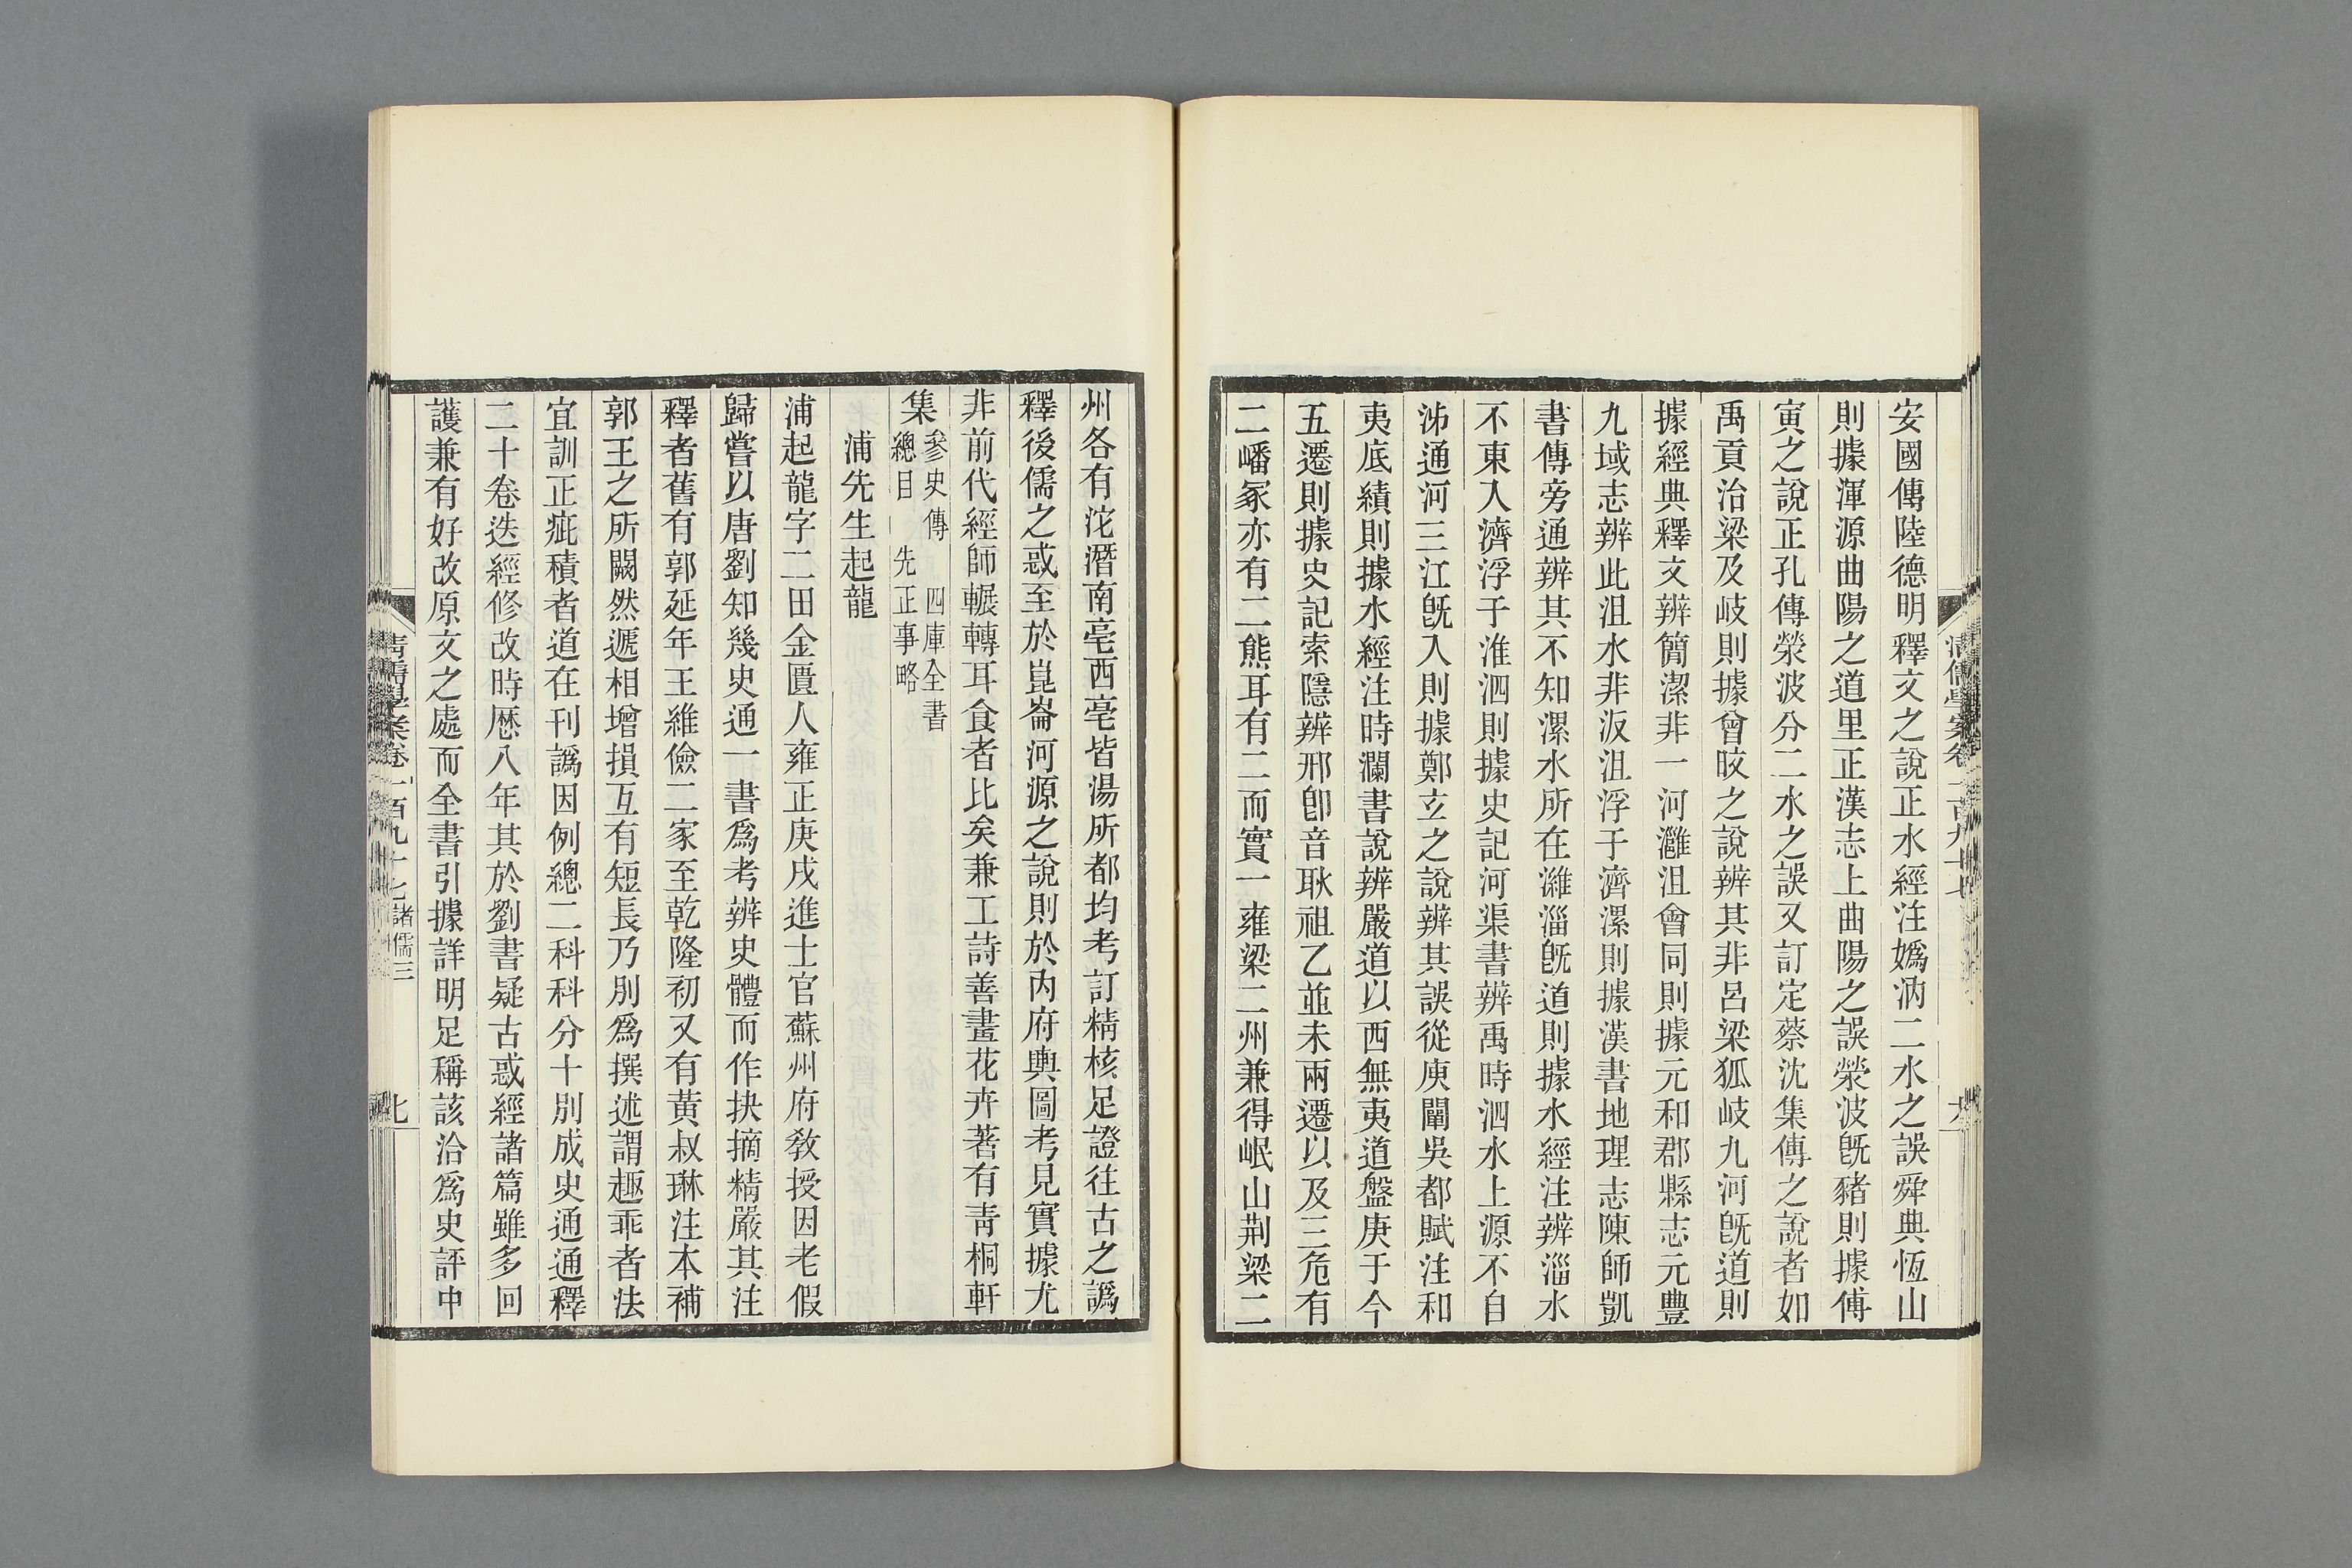 安國傳陸德明釋文之說正水經注嬀汭二水之誤舜典恆山
則據渾源曲陽之道里正漢志上曲陽之誤滎波旣豬則據傅
寅之說正孔傳滎波分二水之誤又訂定蔡沈集傳之說者如
禹貢治梁及岐則據曾旼之說辨其非呂梁狐岐九河旣道則
據經典釋文辨簡潔非一河灉沮會同則據元和郡縣志元豐
九域志辨此沮水非汳沮浮于濟漯則據漢書地理志陳師凱
書傳旁通辨其不知漯水所在濰淄旣道則據水經注辨淄水
不東入濟浮于淮泗則據史記河渠書辨禹時泗水上源不自
泲通河三江旣入則據鄭玄之說辨其誤從庾闡吳都賦注和
夷底績則據水經注時瀾書說辨嚴道以西無夷道盤庚于今
五遷則據史記索隱辨邢卽音耿祖乙並未兩遷以及三危有
二嶓冢亦有二熊耳有二而實一雍梁二州兼得岷山荆梁二
清儒學案卷一百九十七
州各有沱潛南亳西亳皆湯所都均考訂精核足證往古之譌
釋後儒之惑至於崑崙河源之說則於內府輿圖考見實據尤
非前代經師輾轉耳食者比矣兼工詩善畫花卉著有靑桐軒
集 參史傳 四庫全書
總目 先正事略
浦先生起龍
浦起龍字二田金匱人雍正庚戌進士官蘇州府敎授因老假
歸嘗以唐劉知幾史通一書爲考辨史體而作抉摘精嚴其注
釋者舊有郭延年王維儉二家至乾隆初又有黃叔琳注本補
郭王之所闕然遞相增損互有短長乃別爲撰述謂趣乖者法
宜訓正疵積者道在刊譌因例總二科科分十別成史通通釋
二十卷迭經修改時歷八年其於劉書疑古惑經諸篇雖多回
護兼有好改原文之處而全書引據詳明足稱該洽爲史評中
清儒學案卷一百九十七 諸儒三